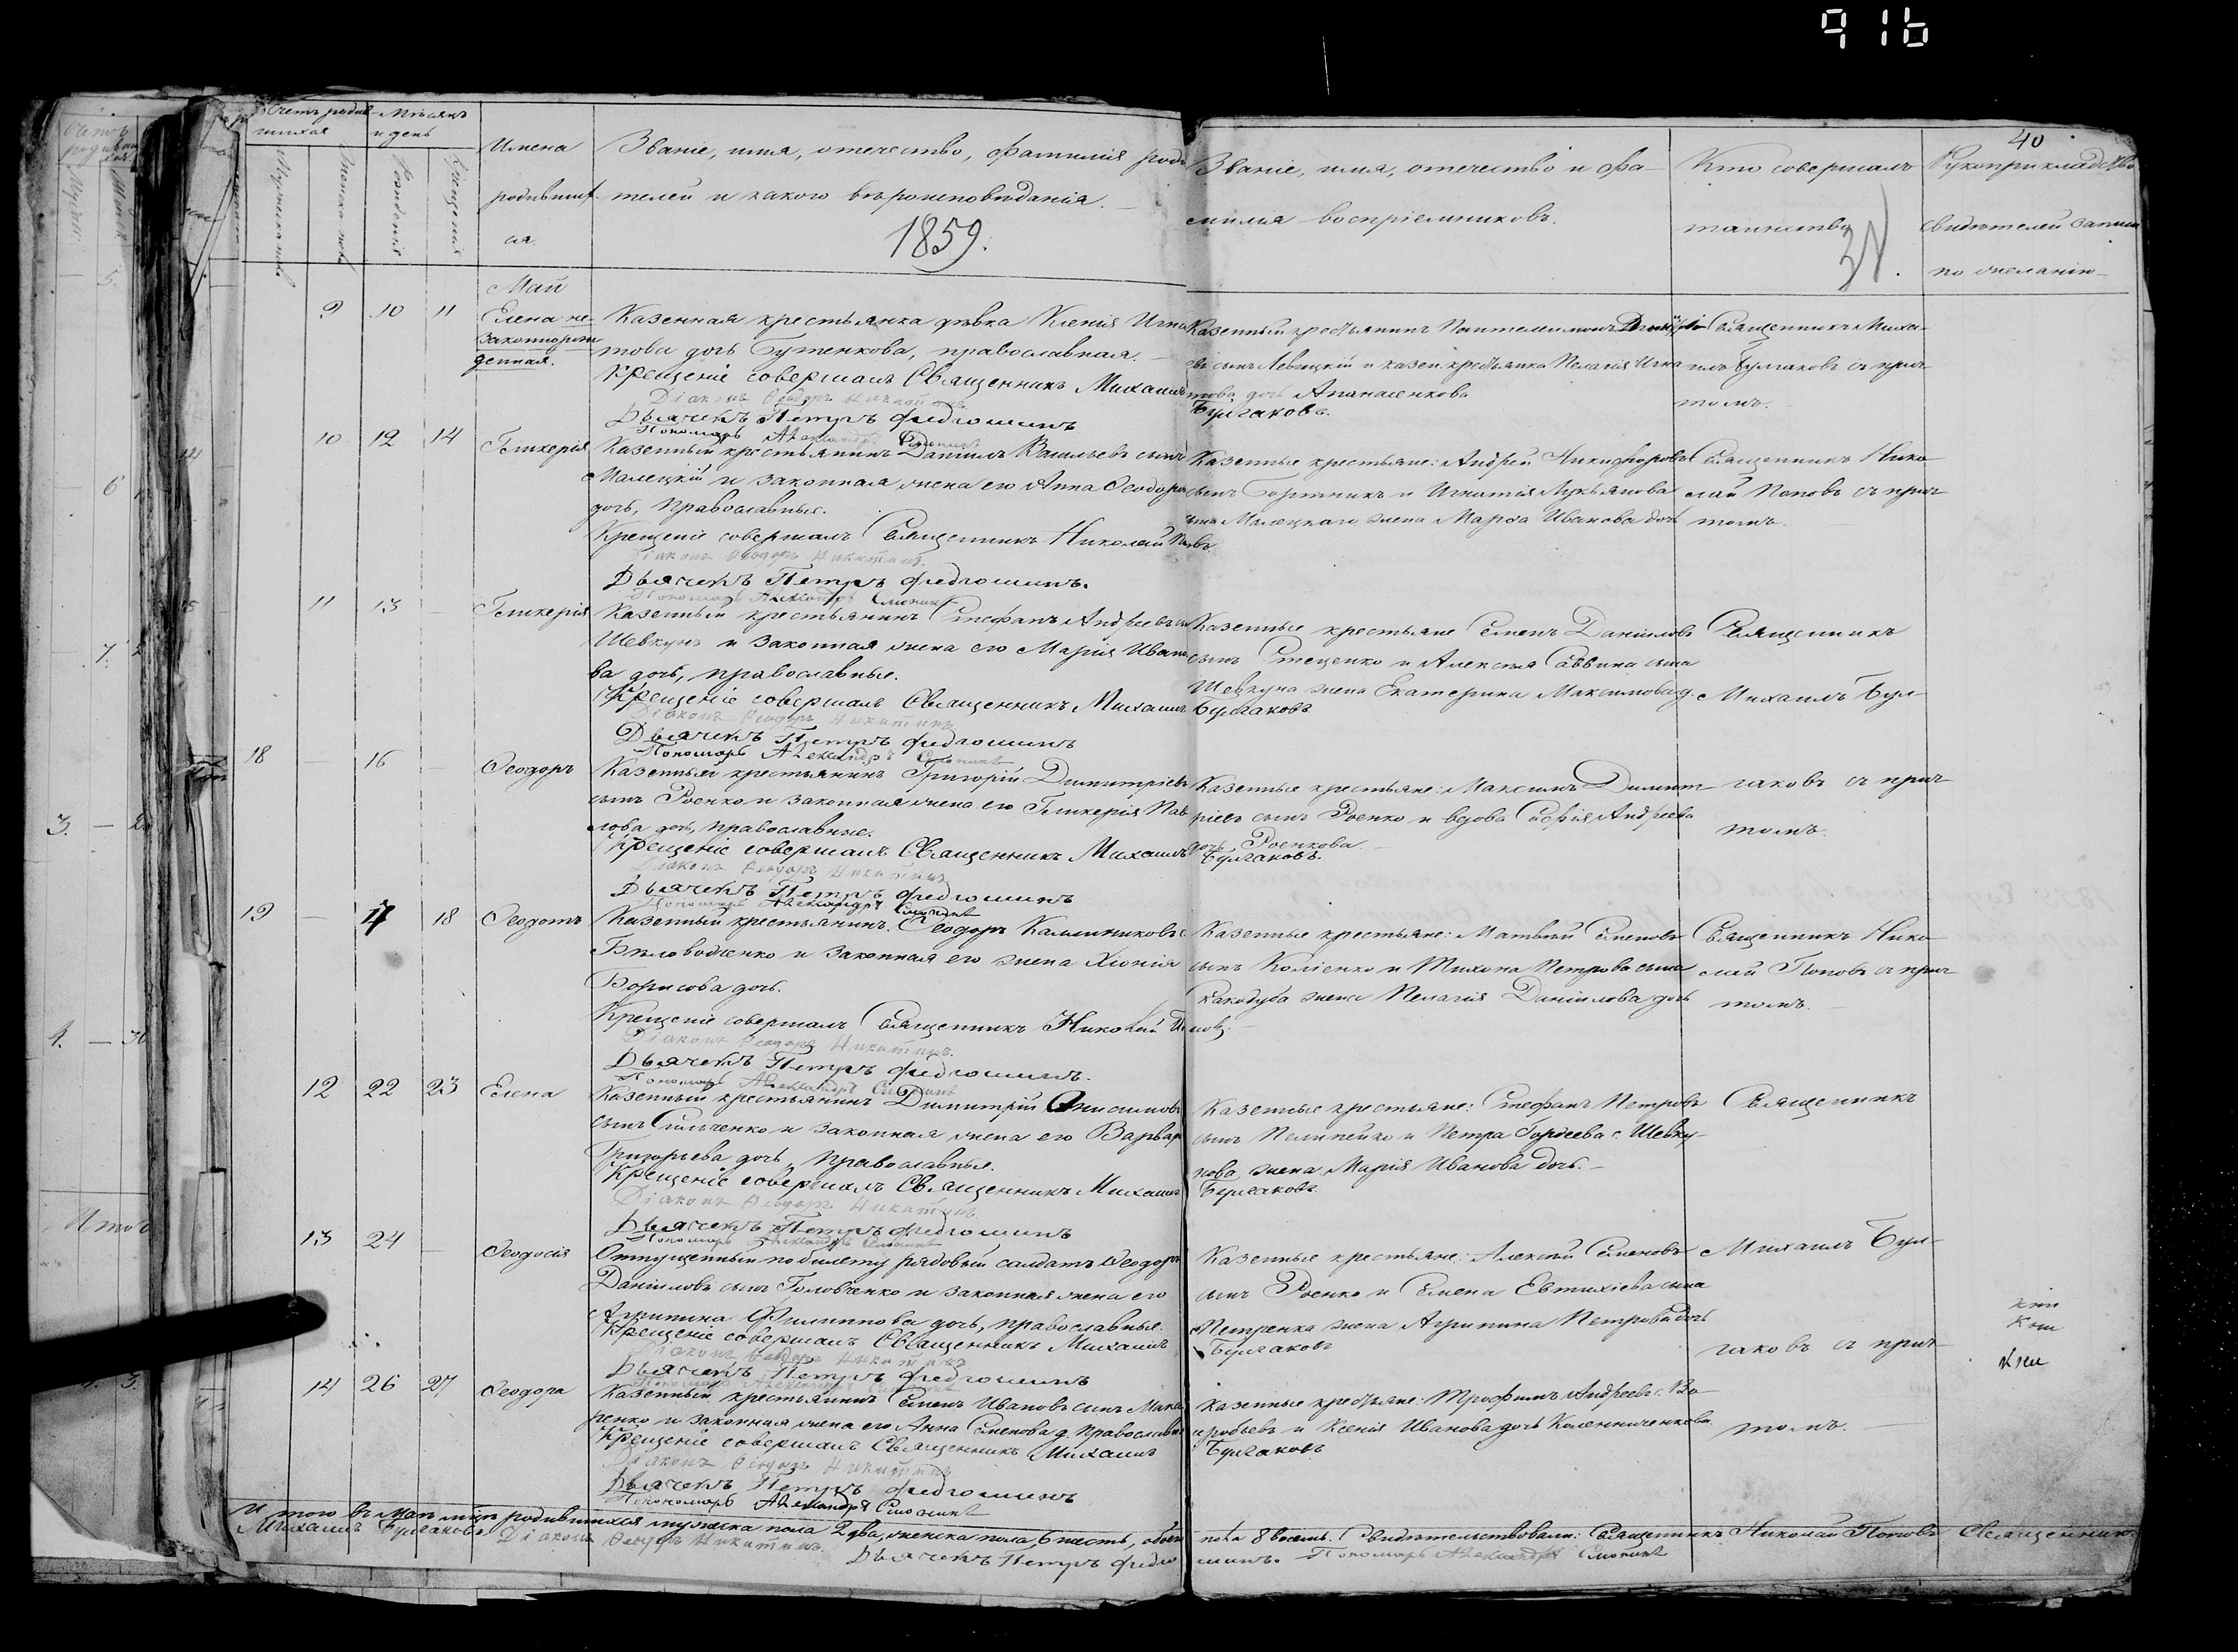 916
40
Счетъ родив-
шихся
Мѣсяцъ
и день
Мужеска полъ
Женска полъ
Рожденія
Крещенія
Имена
родивших-
ся.
Званіе, имя, отечество, фамилія роди
телей и какого вѣроисповѣданія.
1859.
Званіе, имя, отечество и фа-
милія воспріемниковъ.
Кто совершалъ
таинство
Рукоприкладство
свидѣтелей записи
по желанію
Май
9 10 11 Елена не-
законнорож
денная.
Казенная крестьянка дѣвка Ксенія Игна
това дочь Бутенкова, православная.
Крещеніе совершалъ Священникъ Михаилъ
Булгаковъ.
Діаконъ Ѳеодоръ Никитинъ
Дьячекъ Петръ Федюшинъ
Пономарь Александръ
Казенный крестьянинъ Пантелеимонъ
сынъ Левицкій и казен. крестьянка Пелагія Игна
това дочь Апанасенкова
Священникъ Миха-
илъ Булгаковъ съ прич-
томъ.
10 12 14 Гликерія
Казенный крестьянинъ Даніилъ Васильевъ сынъ
Малецкій и законная жена его Анна Ѳеодоро
дочь, православные.
Крещеніе совершалъ Священникъ Николай Поповъ
Діаконъ Ѳеодоръ Никитинъ
Дьячекъ Петръ Федюшинъ.
Пономарь Александръ
Казенные крестьяне: Андрей Никифоровъ
сынъ Бортникъ и Игнатія Лукьянова
сына Малецкаго жена Марѳа Иванова дочь
Священникъ Нико
лай Поповъ съ прич
томъ.
11 13 — Гликерія
Казенный крестьянинъ Стефанъ Андреевъ с.
Шевкунъ и законная жена его Марія Ивано
ва дочь, православные.
Крещеніе совершалъ Священникъ Михаилъ
Булгаковъ
Діаконъ Ѳеодоръ Никитинъ
Дьячекъ Петръ Федюшинъ
Пономарь Александръ
Казенные крестьяне Семенъ Даніиловъ
сынъ Стеценко и Алексѣя Саввина сына
Шевкуна жена Екатерина Максимова д.
Священникъ
Михаилъ Бул-
18 — 16 — Ѳеодоръ
Казенный крестьянинъ Григорій Димитріевъ
сынъ Роенко и законная жена его Гликерія Пав
лова дочь, православные.
Крещеніе совершалъ Священникъ Михаилъ
Булгаковъ.
Діаконъ Ѳеодоръ Никитинъ
Дьячекъ Петръ Федюшинъ
Пономарь Александръ
Казенные крестьяне: Максимъ Димит
ріевъ сынъ Роенко и вдова Софія Андреева
дочь Роенкова.
гаковъ съ прич-
томъ.
19 — 17 18 Ѳеодотъ
Казенный крестьянинъ Ѳеодоръ Калинниковъ с.
Бѣловодченко и законная его жена Хіонія
Борисова дочь.
Крещеніе совершалъ Священникъ Николай Поповъ.
Діаконъ Ѳеодоръ Никитинъ.
Дьячекъ Петръ Федюшинъ.
Пономарь Александръ
Казенные крестьяне: Матвѣй Семеновъ
сынъ Коліенко и Тихона Петрова сына
Какодуба жена Пелагія Даніилова дочь
Священникъ Нико
лай Поповъ съ прич
томъ.
12 22 23 Елена
Казенный крестьянинъ Димитрій Онисимовъ
сынъ Сильченко и законная жена его Варвар
Григорьева дочь, православные.
Крещеніе совершалъ Священникъ Михаилъ
Булгаковъ.
Діаконъ Ѳеодоръ Никитинъ
Дьячекъ Петръ Федюшинъ
Пономарь Александръ
Казенные крестьяне: Стефанъ Петровъ
сынъ Пелипейко и Петра Гордеева с. Шевку-
нова жена Марія Иванова дочь.
Священникъ
13 24 — Ѳеодосія
Отпущенный по билету рядовый солдатъ Ѳеодоръ
Даніиловъ сынъ Головченко и законная жена его
Агрипина Филиппова дочь, православные.
Крещеніе совершалъ Священникъ Михаилъ
Булгаковъ
Діаконъ Ѳеодоръ Никитинъ
Дьячекъ Петръ Федюшинъ
Пономарь Александръ
Казенные крестьяне: Алексѣй Семеновъ
сынъ Роенко и Семена Евтихіева сына
Петренка жена Агрипина Петрова дочь
Михаилъ Бул-
гаковъ съ прич-
14 26 27 Ѳеодора
Казенный крестьянинъ Семенъ Ивановъ сынъ Мака
ренко и законная жена его Анна Семенова д. православные
Крещеніе совершалъ Священникъ Михаилъ
Булгаковъ
Діаконъ Ѳеодоръ Никитинъ
Дьячекъ Петръ Федюшинъ
Пономарь Александръ
Казенные крестьяне: Трофимъ Андреевъ с. Во-
робьевъ и Ксенія Иванова дочь Калениченкова
томъ.
Итого въ Маѣ мѣсяцѣ родившихся мужеска пола 2 два, женска пола 6 шесть, обоего пола 8 восемь. Свидѣтельствовали: Священникъ Николай Поповъ Священникъ
Михаилъ Булгаковъ Діаконъ Ѳеодоръ Никитинъ. Дьячекъ Петръ Федюшинъ. Пономарь Александръ